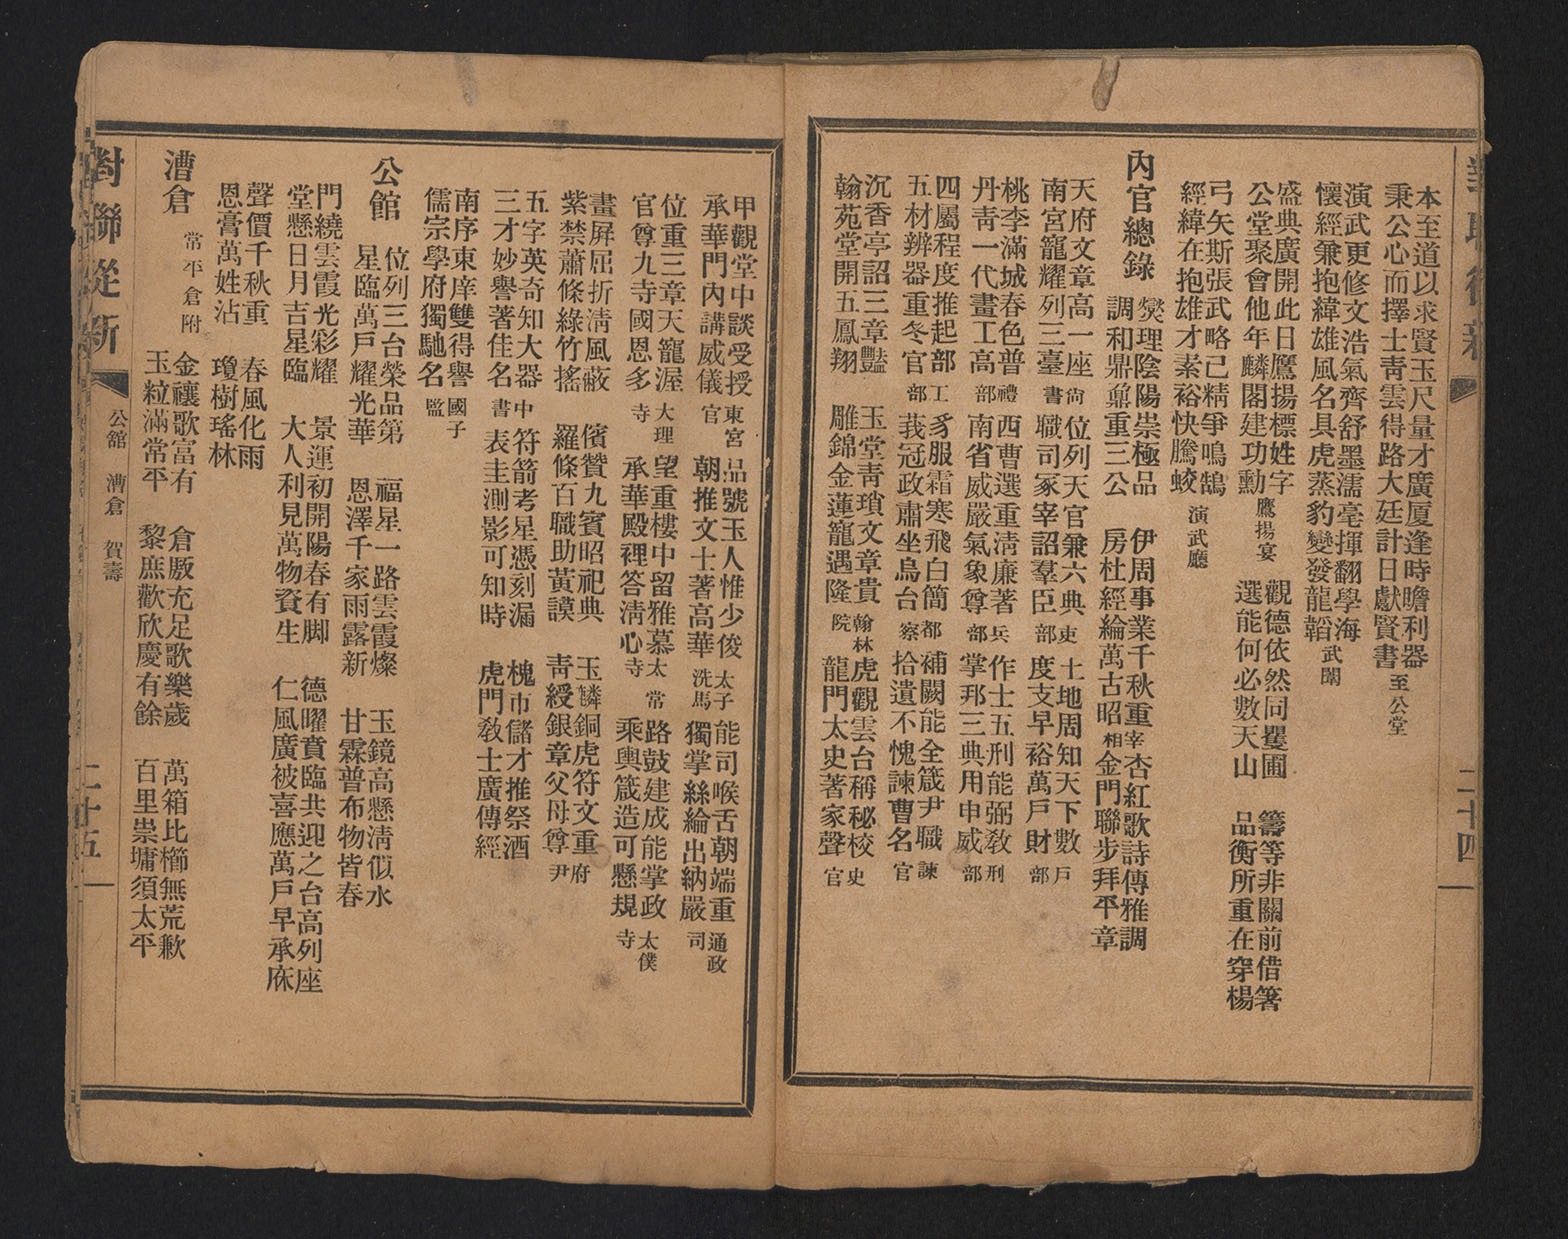 本至道以求賢玉尺量才廣厦逢時瞻利器
秉公心而擇士靑雲得路大廷計日獻賢書 至公堂
演武更修文浩氣齊舒墨濡毫揮翻學海
懷經兼抱緯雄風名具虎蒸豹變發龍韜 武闈
盛典廣開此日鷹揚標姓字
公堂聚會他年麟閣建功勳 鷹揚宴
觀德依然同矍圃
選能何必數天山
籌等非關前借箸
品衡所重在穿楊
弓矢斯張武略已精爭鳴鵠
經緯在抱雄才素裕快騰蛟 演武廳
內官總錄
燮理陰陽崇極品
調和鼎鼐重三公
伊周事業千秋重
房杜經綸萬古昭 宰相
杏紅歌詩傳雅調
金門聯步拜平章
天府文章高一座
南宮寵耀列三臺 尚書
位列天官兼六典
職司冢宰詔羣臣 吏部
土地周知天下數
度支早裕萬戶財 戶部
桃李滿城春色普
丹靑一代畫工高 禮部
西曹選重淸廉著
南省威嚴氣象尊 兵部
作士五刑能弼敎
掌邦三典用申威 刑部
四屬程度推起部
五材辨器重冬官 工部
豸服霜寒飛白簡
莪冠政肅坐烏台 都察
補闕能全箴尹職
拾遺不愧諫曹名 諫官
沉香亭詔三章豔
翰苑堂開五鳳翔
玉堂靑瑣文章貴
雕錦金蓮寵遇隆 翰林院
虎觀雲台稱秘校
龍門太史著家聲 史官
甲觀堂中談受授
承華門內講威儀 東宮官
品號玉人惟少俊
朝推文士著高華 太子洗馬
能司喉舌朝端重
獨掌絲綸出納嚴 通政司
位重三章天寵渥
官尊九寺國恩多 大理寺
望重樓中留雅慕
承華殿裡答淸心 太常寺
路鼓建成能掌政
乘輿箴造可懸規 太僕寺
畫屏屈折淸風蔽
紫禁蕭條綠竹搖
儐贊九賓昭祀典
羅條百職助黃謨
玉麟銅虎符文重
靑綬銀章父母尊 府尹
五字英奇知大器
三才妙譽著佳名 中書
符箭考星憑刻漏
表圭測影可知時
槐市儲才推祭酒
虎門敎士廣傳經
南序東庠雙得譽
儒宗學府獨馳名 國子監
公館
位列三台榮品第
星臨萬戶耀光華
福星一路雲霞燦
恩澤千家雨露新
玉鏡高懸淸似水
甘霖普布物皆春
門繞雲霞光彩耀
堂懸日月吉星臨
景運初開陽春有脚
大人利見萬物資生
德曜賁臨共迎之台高列座
仁風廣被喜應萬戶早承庥
聲價千秋重
恩膏萬姓沾
春風化雨
瓊樹瑤林
漕倉 常平倉附
金穰歌富有
玉粒滿常平
倉厫充足歌樂歲
黎庶歡欣慶有餘
萬箱比櫛無荒歉
百里崇墉須太平
對聯從新
公館 漕倉 賀壽
二十五
二十四